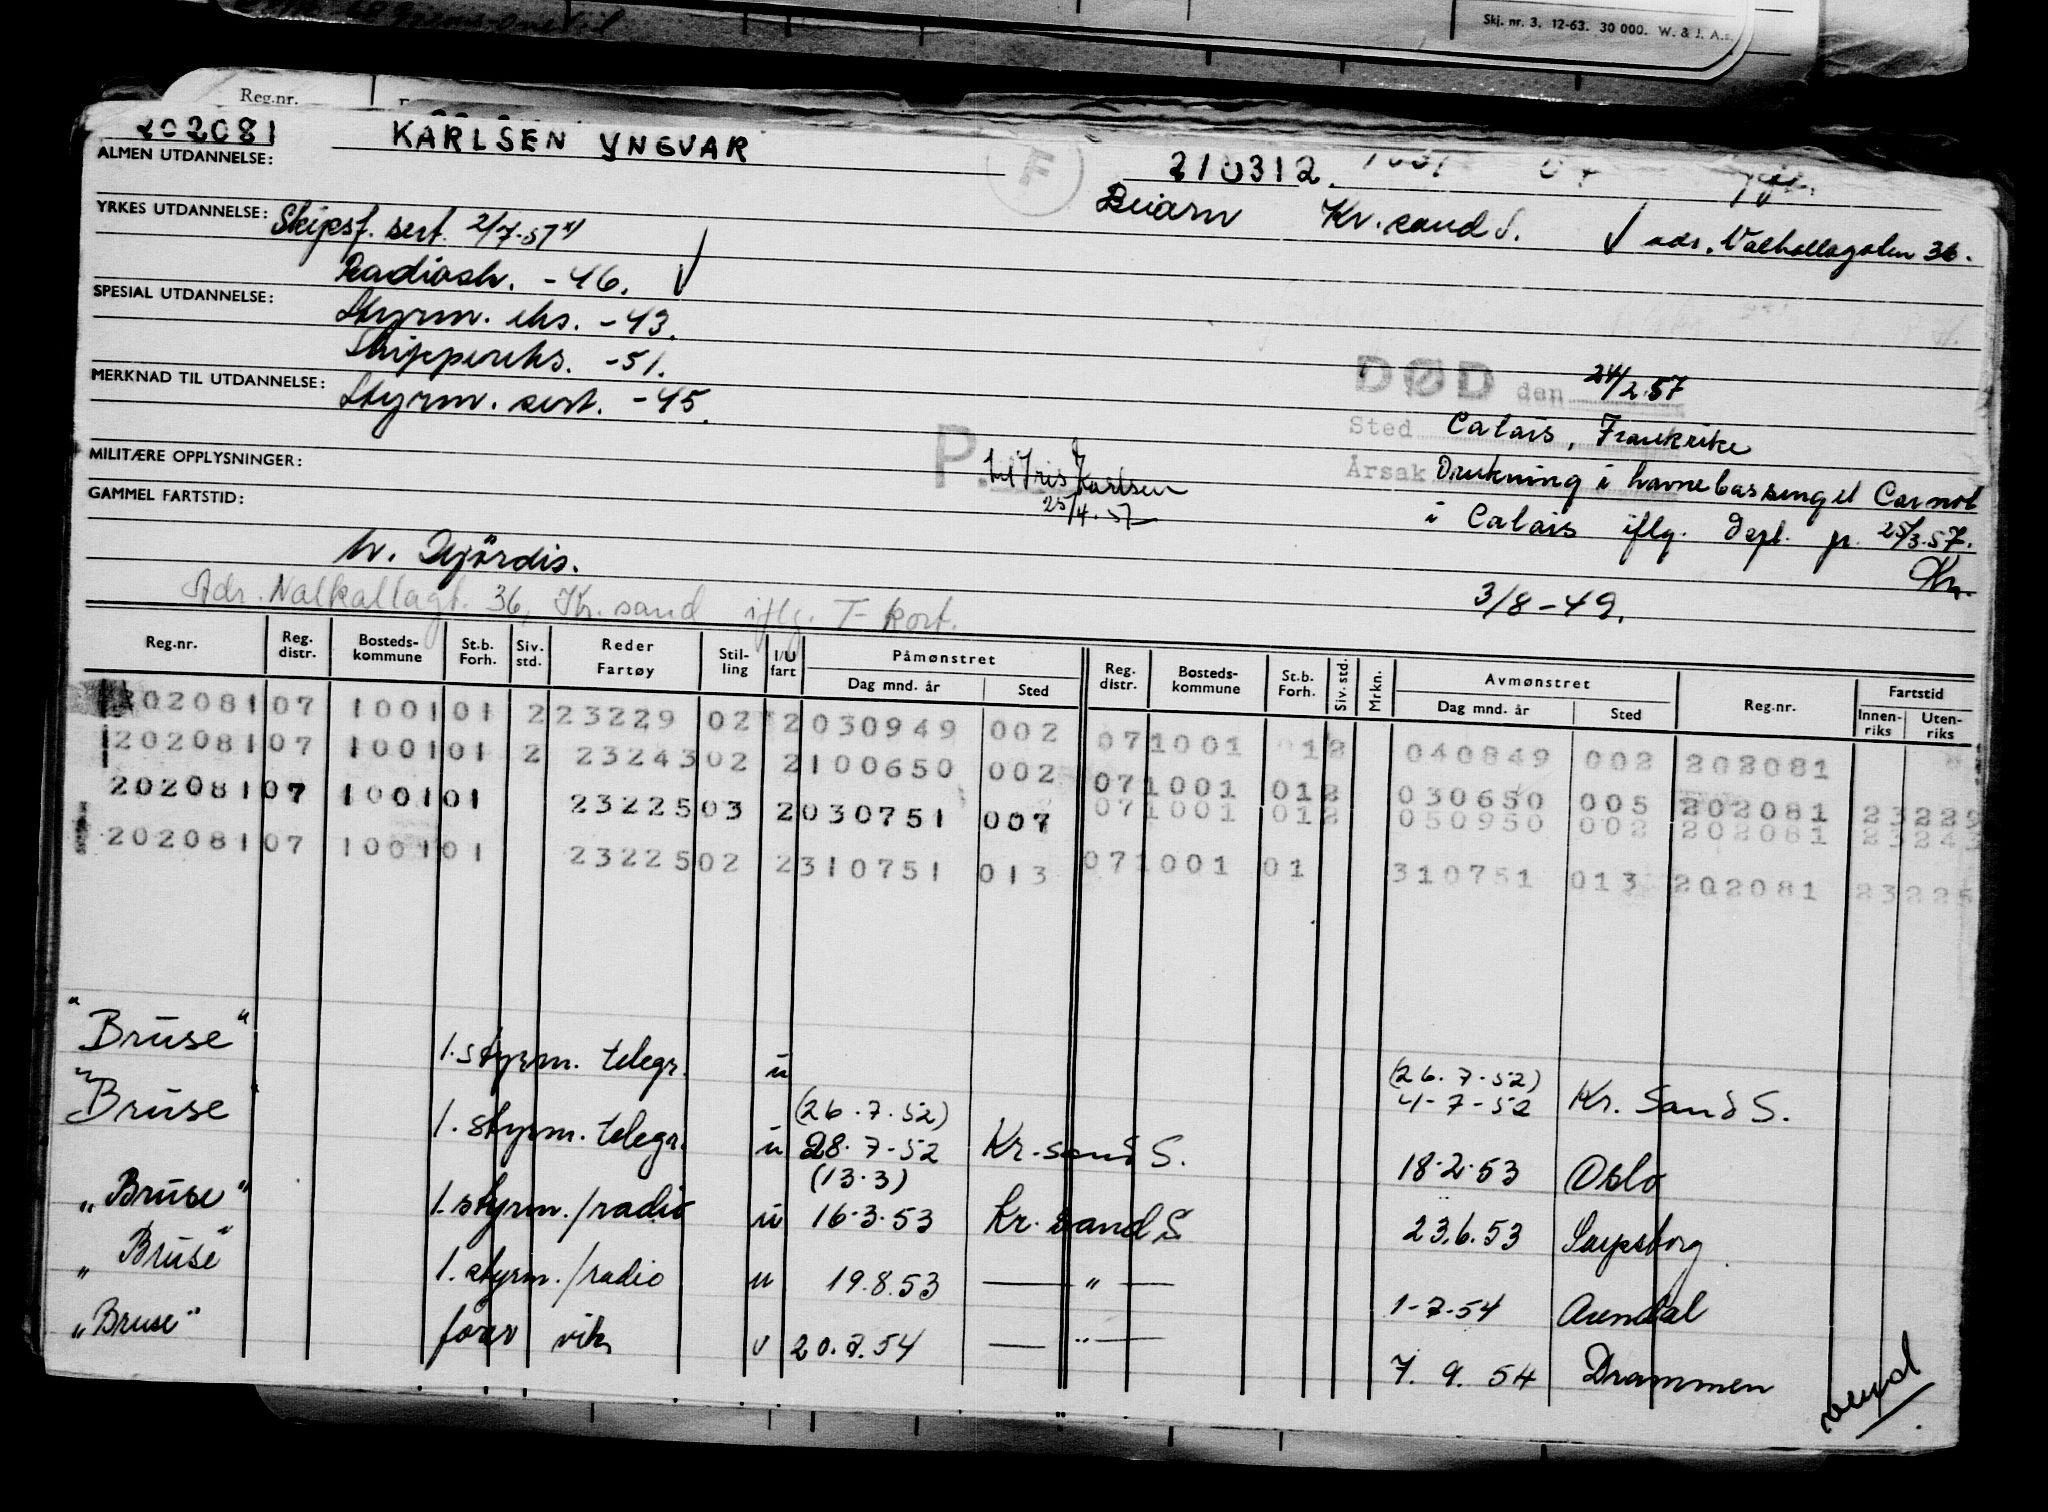 Skj. nr. 3. 12-63. 30 000. W. & J. A.s.
Reg.nr.
202081 KARLSEN YNGVAR 210312
ALMEN UTDANNELSE:
Beiarn Kr.sand S. adr. Valhallagaten 36.
YRKES UTDANNELSE: Skipsf. sert. 2/7-57
Radiosk. -46.
SPESIAL UTDANNELSE:
Styrm. eks. -43.
Skippereks. -51.
MERKNAD TIL UTDANNELSE:
Styrm. sert. -45.
DØD den 24/2.57
Sted Calais, Frankrike
Årsak Drukning i havnebassenget Carnot
i Calais iflg. Dept. pr. 25/3.57.
P. til Iris Karlsen
25/4.57
MILITÆRE OPPLYSNINGER:
GAMMEL FARTSTID:
h. Hjördis.
3/8-49.
Adr. Valhallagt. 36, Kr.sand iflg. T-kort.
Reg.nr. Reg. distr. Bosteds-kommune St.b. Forh. Siv. std. Reder Fartøy Stil-ling I/U fart Påmønstret Dag mnd. år Sted Reg. distr. Bosteds-kommune St.b. Forh. Siv. std. Mrkn. Avmønstret Dag mnd. år Sted Reg.nr. Fartstid Innen-riks Uten-riks
202081 07 1001 01 2 23229 02 2 030949 002 07 1001 01 2 040849 002 202081
202081 07 1001 01 2 23243 02 2 100650 002 07 1001 01 2 030650 005 202081 23229
202081 07 1001 01 23225 03 2 030751 007 07 1001 01 2 050950 002 202081 23243
202081 07 1001 01 23225 02 2 310751 013 07 1001 01 310751 013 202081 23225
"Bruse" 1. styrm. telegr. u (26.7.52) 4-7-52 Kr. Sand S.
"Bruse" 1. styrm. telegr. u (26.7.52) 28.7-52 Kr.sand S. 18.2.53 Oslo
"Bruse" 1. styrm./radio u (13.3) 16.3.53 Kr.sand S 23.6.53 Sarpsborg
"Bruse" 1. styrm./radio u 19.8.53 — " — 1-7-54 Arendal
"Bruse" fører vik u 20.8.54 — " — 7.9.54 Drammen
vend